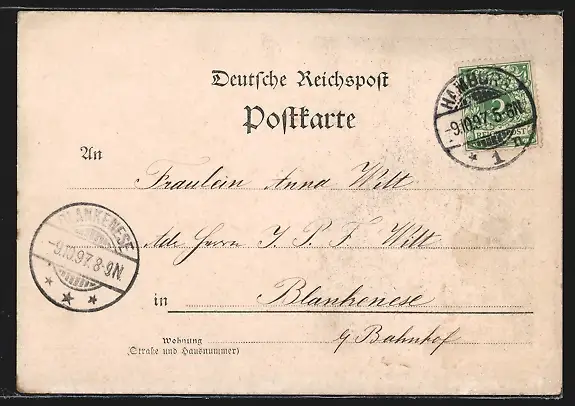 Deutsche Reichspost
Postkarte
HAMBURG
-9.10.97.5-6N
* 1 n.
REICHSPOST
An
Fräulein Anna Witt
Adr. Herrn J. P. F. Witt
BLANKENESE
-9.10.97.8-9N
* * *
in Blankenese
Wohnung
(Straße und Hausnummer)
Bahnhof